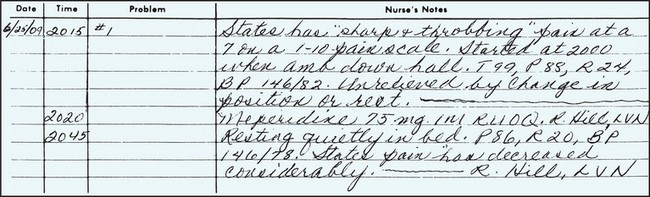 Date Time Problem Nurse's Notes
6/25/09 2015 #1 States has "sharp & throbbing" pain at a
7 on a 1-10 pain scale. Started at 2000
when amb down hall. T 99, P 88, R 24,
BP 146/82. Unrelieved by change in
position or rest.
2020 Meperidine 75 mg. IM RUOQ. R. Hill, LVN
2045 Resting quietly in bed. P 86, R 20, BP
146/78. States pain "has decreased
considerably. R. Hill, LVN